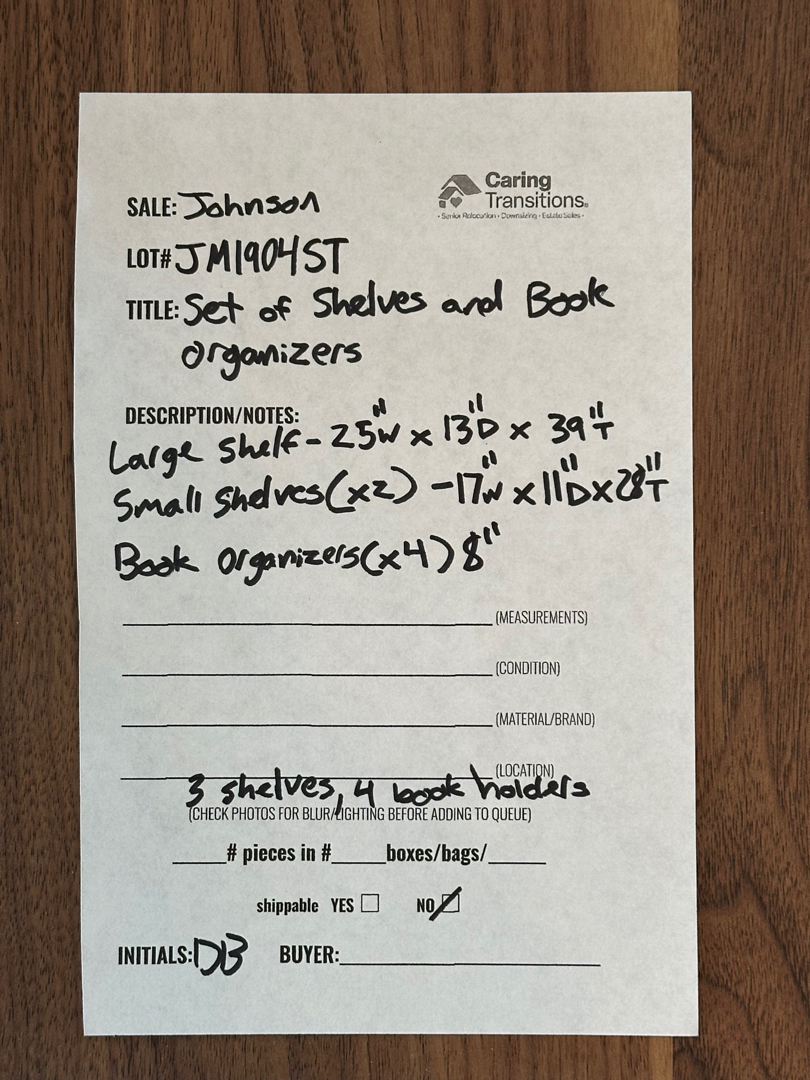 Caring
Transitions®
• Senior Relocation • Downsizing • Estate Sales •
SALE: Johnson
LOT# JM1904ST
TITLE: Set of Shelves and Book
organizers
DESCRIPTION/NOTES:
Large shelf - 25"W x 13"D x 39"T
Small shelves (x2) - 17"W x 11"D x 28"T
Book organizers (x4) 8"
(MEASUREMENTS)
(CONDITION)
(MATERIAL/BRAND)
(LOCATION)
3 shelves, 4 book holders
(CHECK PHOTOS FOR BLUR/LIGHTING BEFORE ADDING TO QUEUE)
_____# pieces in #_____boxes/bags/_____
shippable YES ☐ NO ☑
INITIALS: DB BUYER: